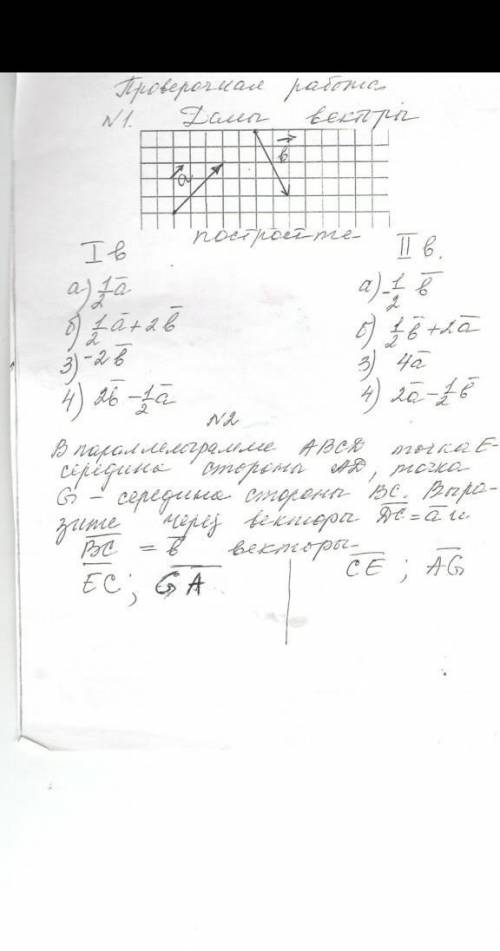 Проверочная работа
№1. Даны векторы
a b
постройте
I в
II в.
а) 1/2 a̅
а) -1/2 b̅
б) 1/2 a̅ + 2b̅
б) 1/2 b̅ + 2a̅
3) -2b̅
3) 4a̅
4) 2b̅ - 1/2 a̅
4) 2a̅ - 1/2 b̅
№2
В параллелограмме ABCD точка E-
середина стороны AD, точка
G - середина стороны BC. Выра-
зите через векторы DC = a̅ и
BC = b̅ векторы-
EC; GA
CE; AG